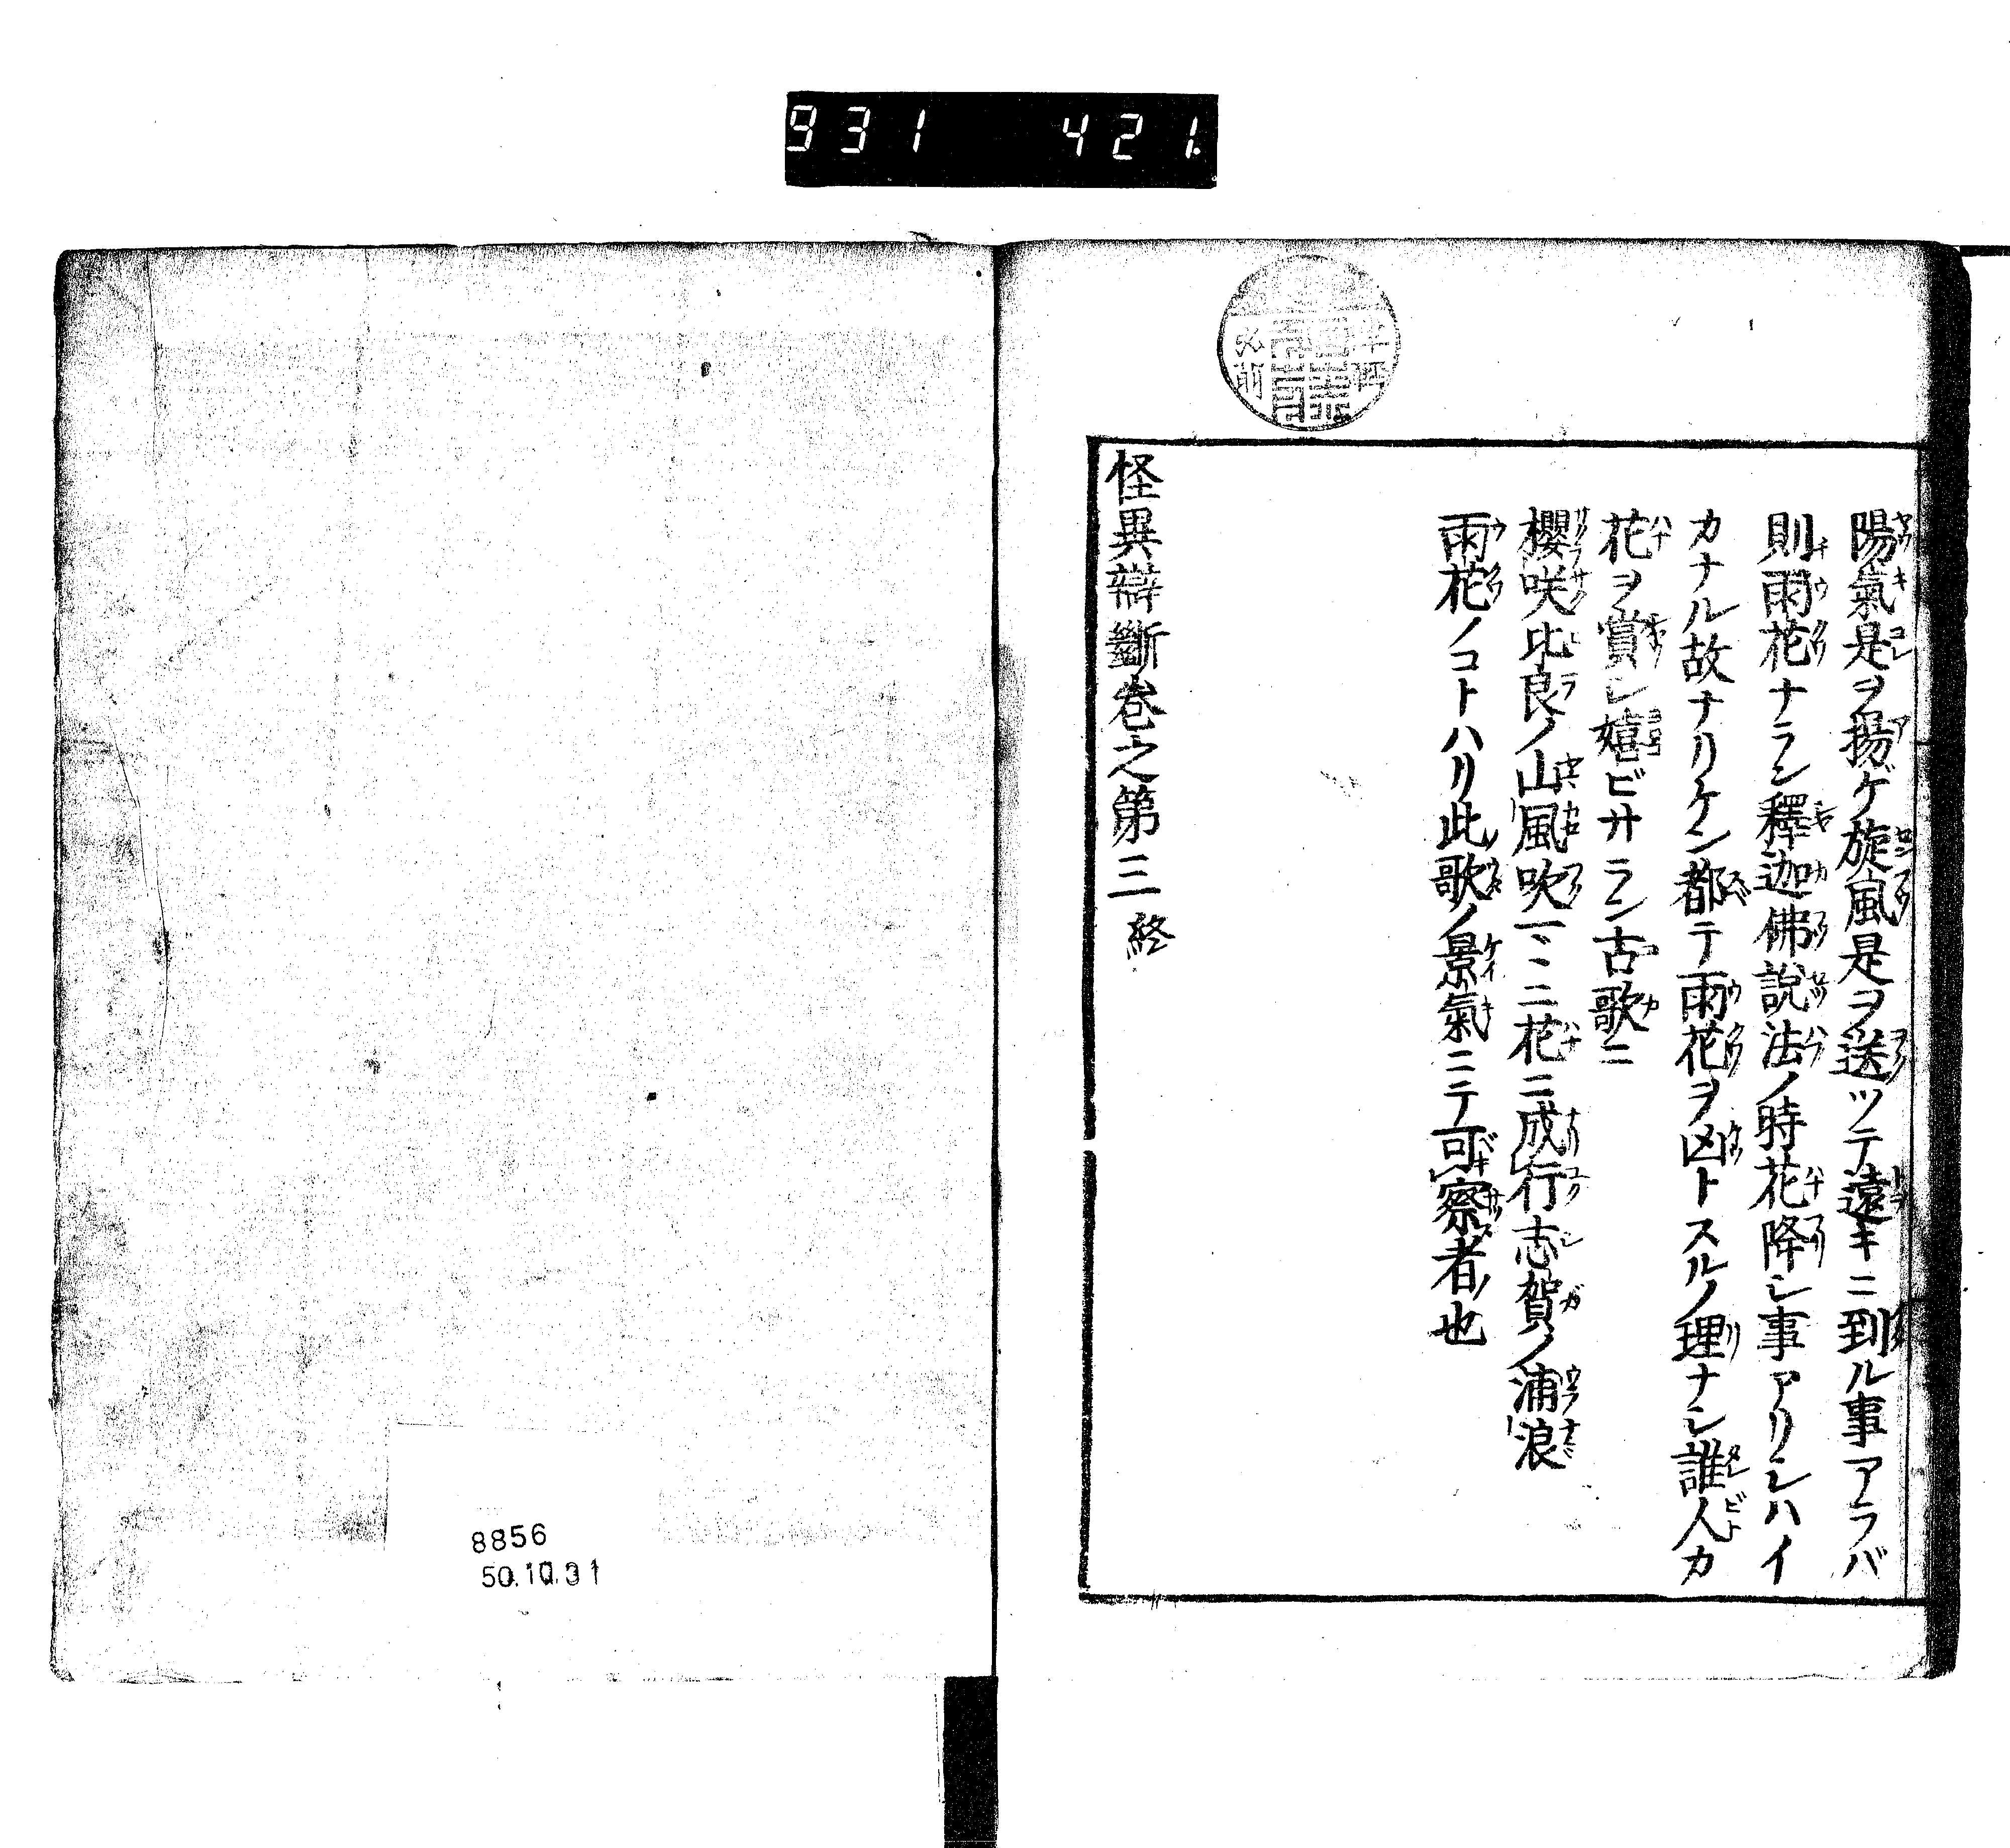 931 421.
陽氣是ヲ揚ゲ旋風是ヲ送ツテ遠キニ到ル事アラバ
則雨花ナラン釋迦佛說法ノ時花降シ事アリシハイ
カナル故ナリケン都テ雨花ヲ凶トスルノ理ナシ誰人カ
花ヲ賞シ嬉ビサラン古歌ニ
櫻咲比良ノ山風吹マヽニ花ニ成行志賀ノ浦浪
雨花ノコトハリ此歌ノ景氣ニテ可察者也
怪異辯斷卷之第三終
8856
50.10.31